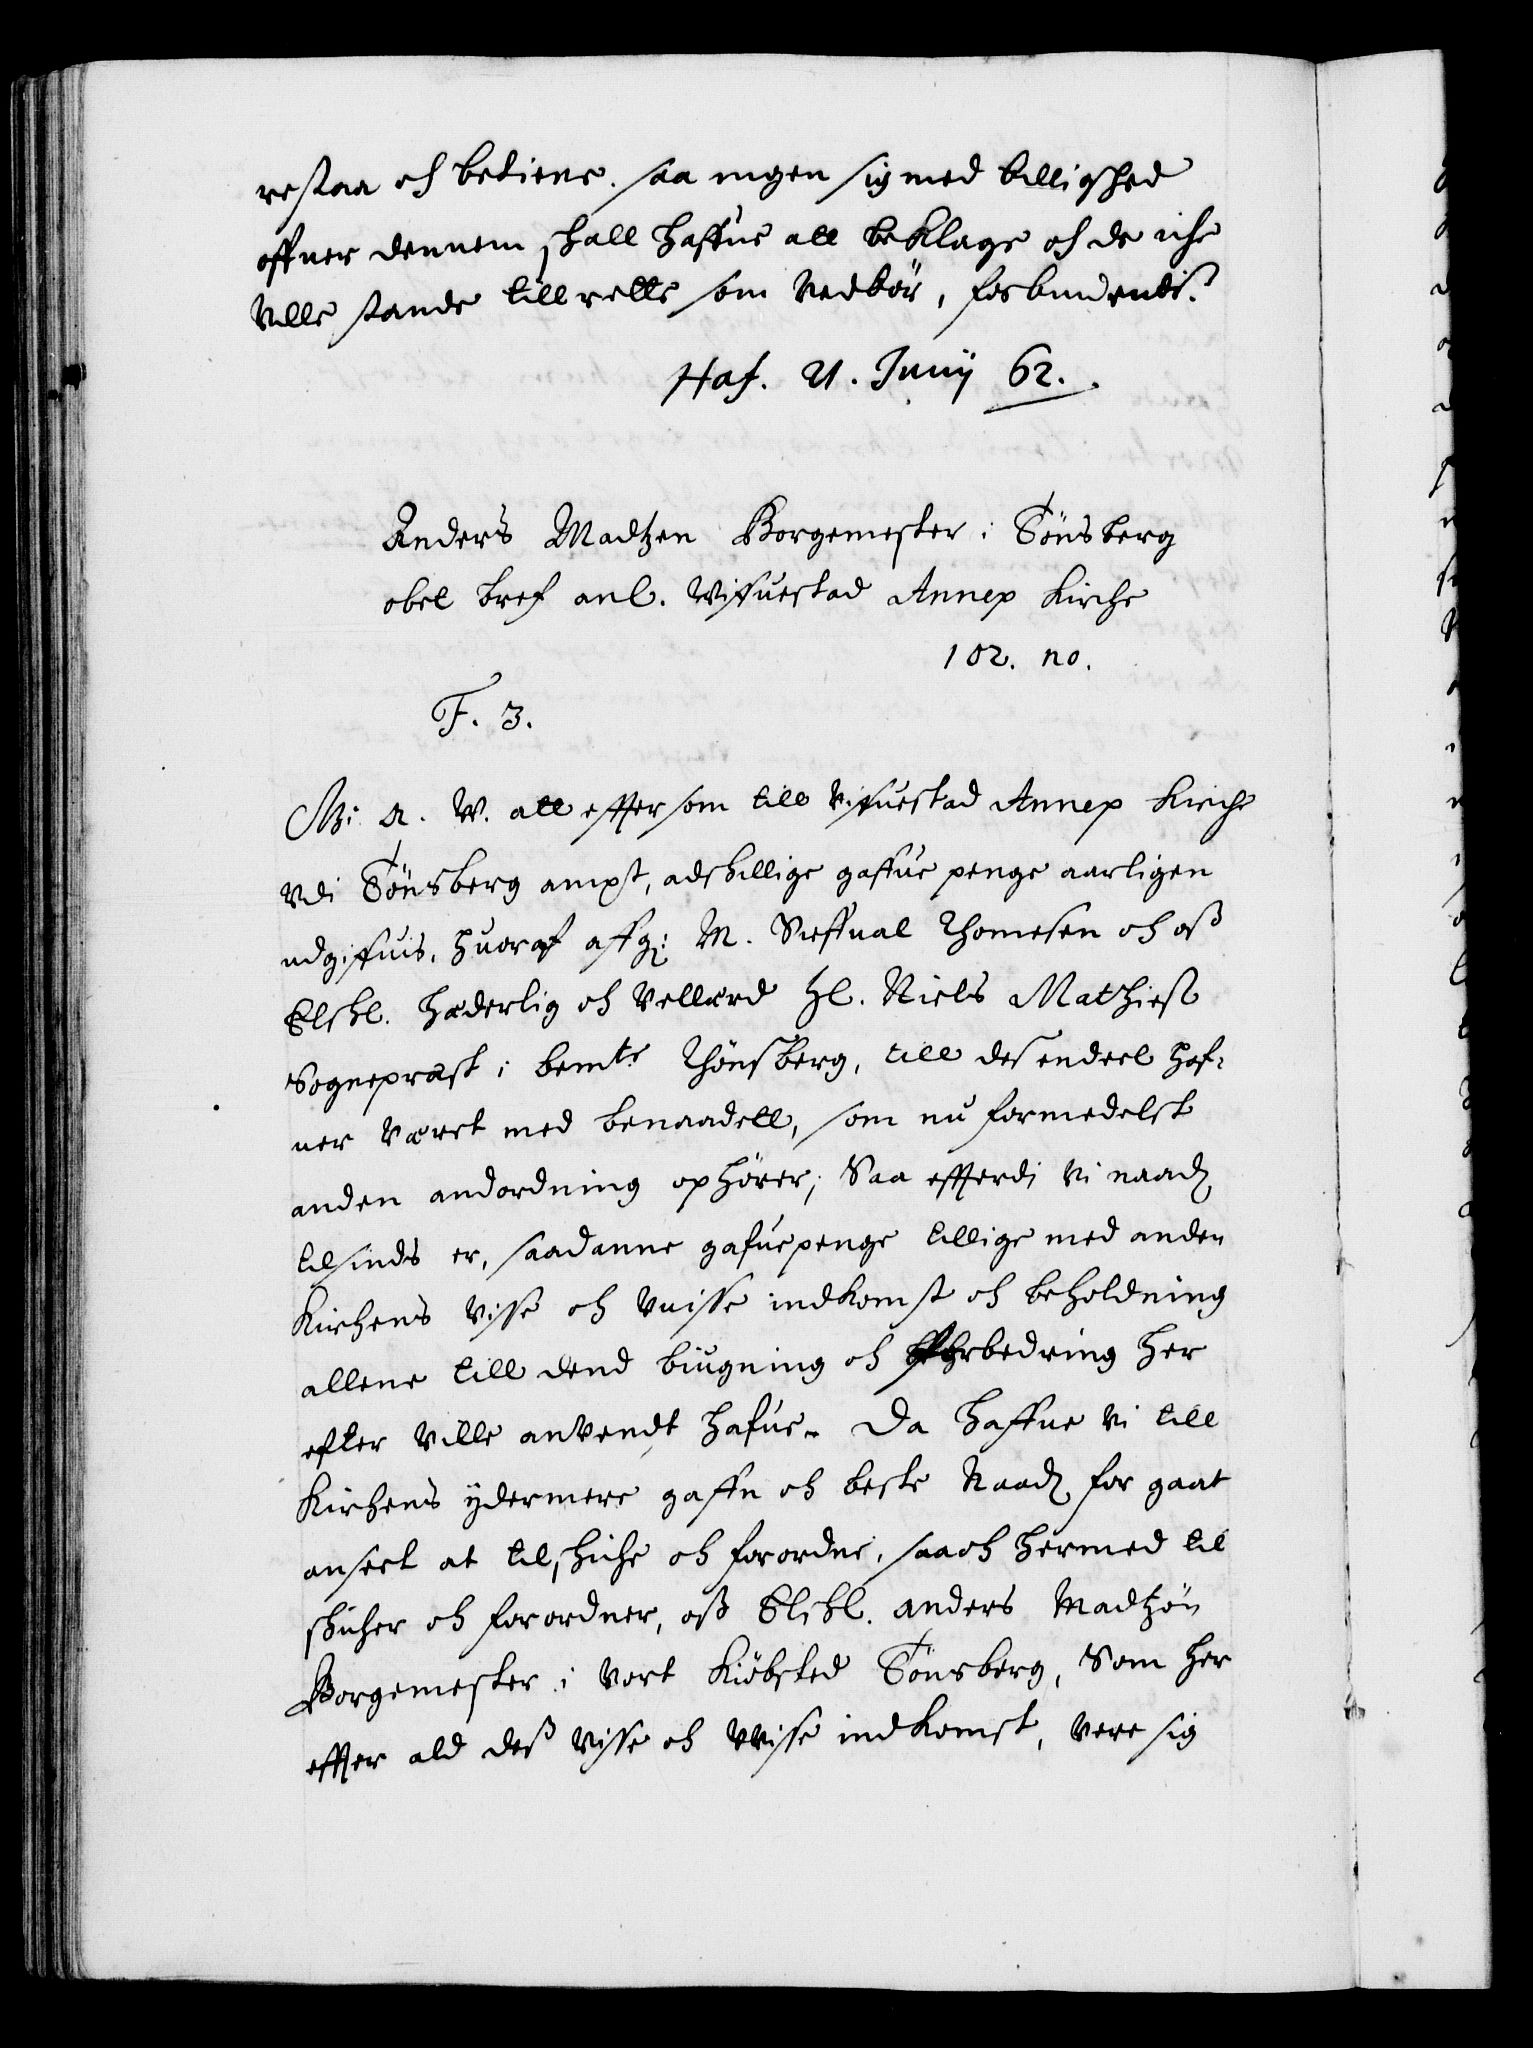 restaa och betiene. saa ingen sig med billighed
offuer dennem skall haffue att beklage och de iche
Ville stande till rette som Vedbör, forbindendis.
Haf. 21. Junij 62.
Anders Madtzen Borgemester i Tönsberg
obet bref anl. Vifuestad Annex Kirche
102. no.
F. 3.
Vi: A. W. att effter som till Vifuestad Annex Kirche
Vdi Tönsberg ampt, adskillige gaffue penge aarligen
udgiffuis, huoraf affg: M. Thomesen och oß
Elskl. Hæderlig och Vellærd Hl. Niels Mathiesß
Sogneprest i bemte Thönsberg, till des endeel haf-
uer Været med benaadett, som nu formedelst
anden andordning ophörer; Saa efftterdi Vi naadl
til sinds er, saadanne gafuepenge tillige med anden
Kirchens Visse och Vuisse indkomst och beholdning
allene till dend biugning och forbedring her
efter Ville anvendt hafue. Da haffue Vi till
Kirchens ÿdermere gaffn och beste Naadl for gaat
anseet at tilskiche och forordne, saa och hermed til
skicher och forordner, oß Elskl. Anders Madtzön
Borgemester i Vort Kiöbsted Tönsberg, Som her
effter ald deß Visse och VVisse indkomst, Vere sig